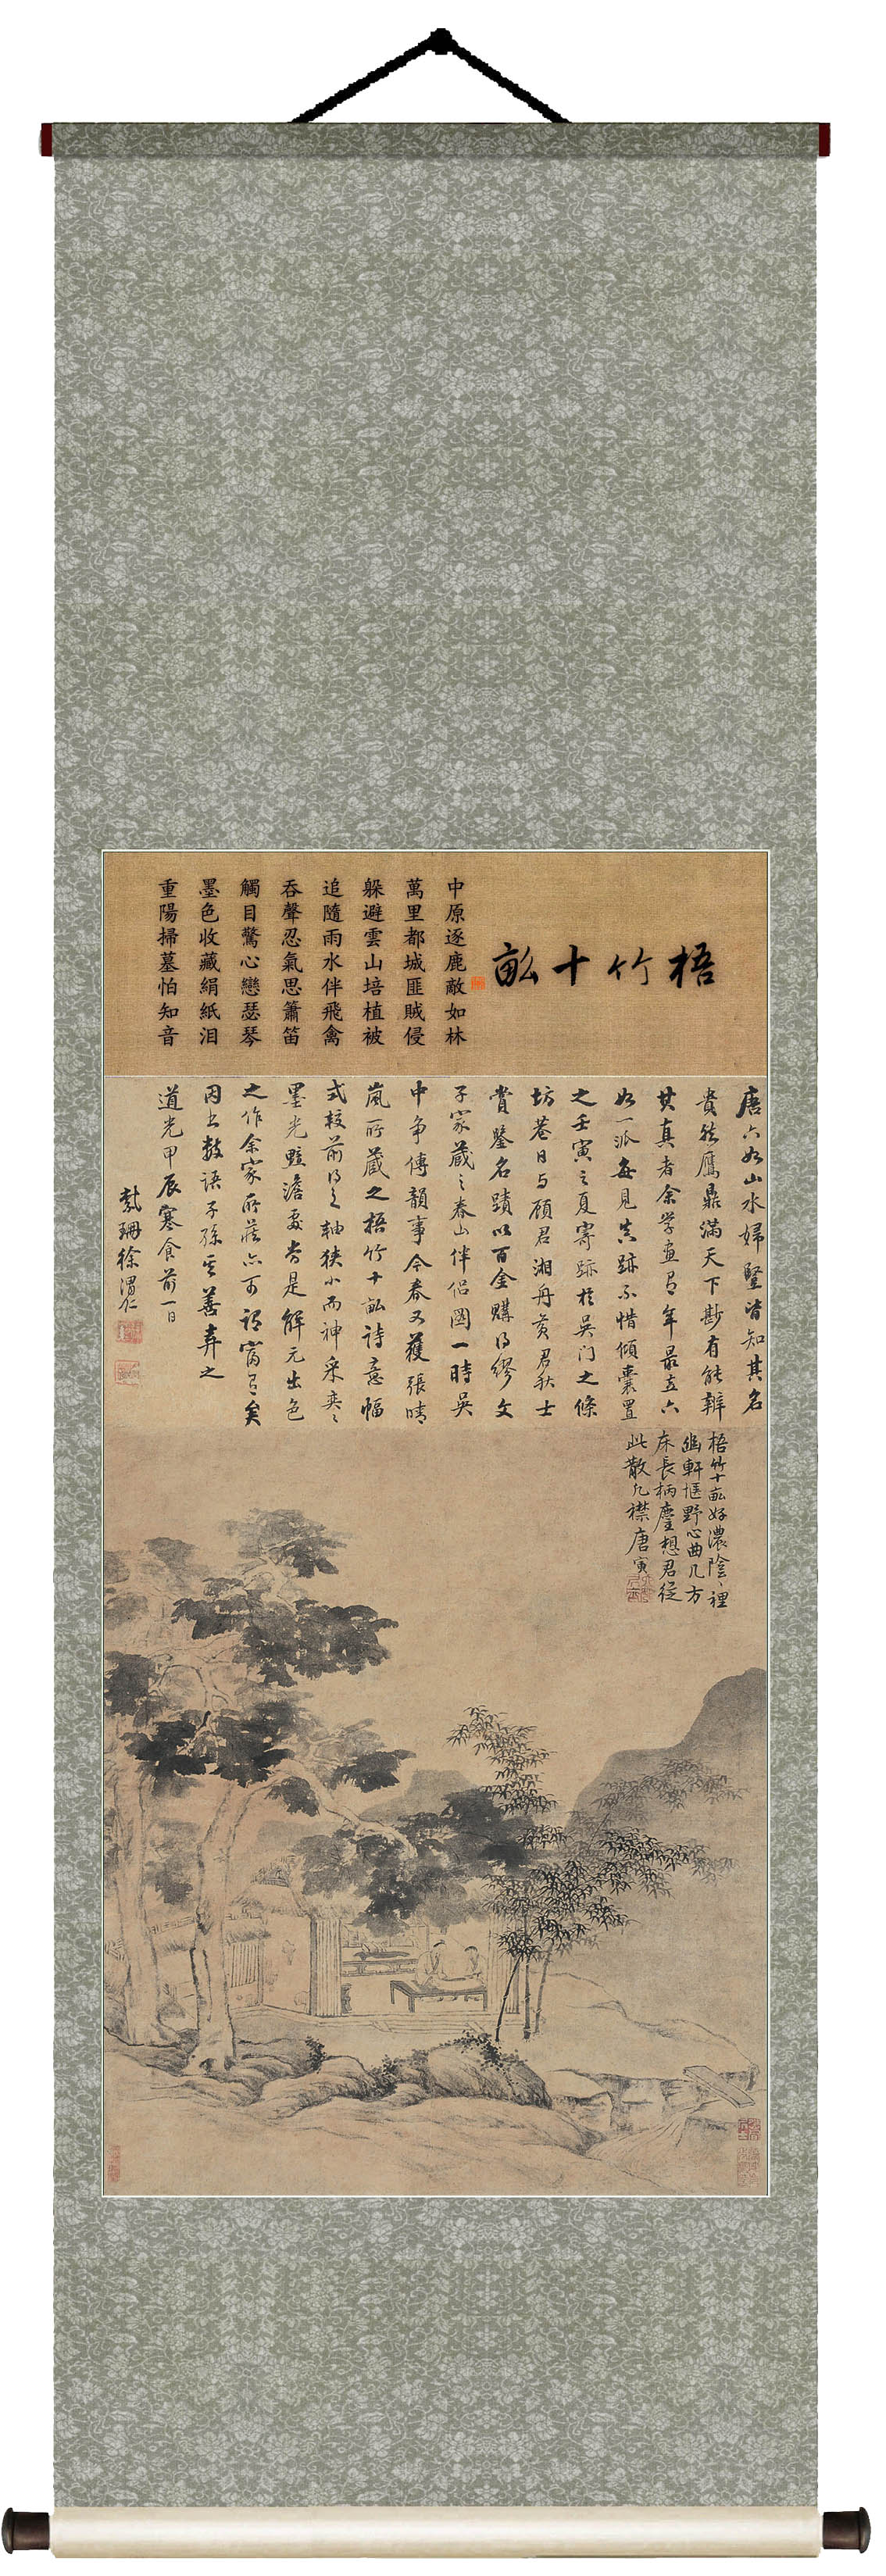 梧竹十畝
中原逐鹿敵如林
萬里都城匪賊侵
躲避雲山培植被
追隨雨水伴飛禽
吞聲忍氣思簫笛
觸目驚心戀瑟琴
墨色收藏絹紙泪
重陽掃墓怕知音
唐六如山水婦豎皆知其名
貴然鷹鼎滿天下尠有能辨
其真者余学畫有年最六
如一派每見真跡不惜傾囊置
之壬寅之夏寄跡於吳门之條
坊巷日与顧君湘舟黄君秋士
賞鑒名蹟以百金購得繆文
子家藏之春山伴侶圖一時吳
中争傳韻事今春又獲張晴
嵐所藏之梧竹十畝詩意幅
式校前得之軸狹小而神采奕々
墨光黯澹處尚是解元出色
之作余家所藏亦可謂富有矣
因书數語子孫其善弆之
道光甲辰寒食前一日
紫珊徐渭仁
梧竹十畝好濃陰々裡
幽軒愜野心曲几方
床長柄麈想君從
此散冗襟唐寅